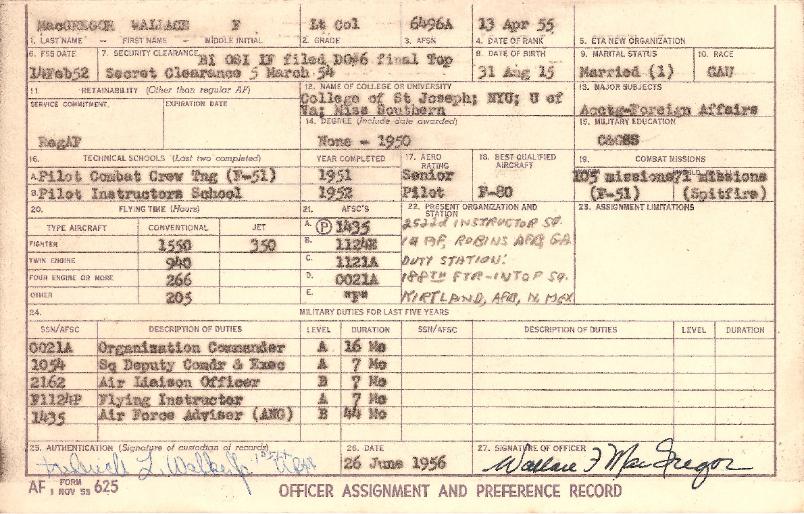 MacGREGOR WALLACE F Lt Col 6496A 13 Apr 55
1. LAST NAME - FIRST NAME - MIDDLE INITIAL 2. GRADE 3. AFSN 4. DATE OF RANK 5. ETA NEW ORGANIZATION
6. FSS DATE 7. SECURITY CLEARANCE 8. DATE OF BIRTH 9. MARITAL STATUS 10. RACE
BI OSI IF filed DO#6 final Top
14Feb52 Secret Clearance 5 March 54 31 Aug 15 Married (1) CAU
11. RETAINABILITY (Other than regular AF) 12. NAME OF COLLEGE OR UNIVERSITY 13. MAJOR SUBJECTS
SERVICE COMMITMENT EXPIRATION DATE
College of St Joseph; NYU; U of
Va; Miss Southern Acctg-Foreign Affairs
14. DEGREE (Include date awarded) 15. MILITARY EDUCATION
RegAF None - 1950
16. TECHNICAL SCHOOLS (Last two completed) YEAR COMPLETED 17. AERO RATING 18. BEST QUALIFIED AIRCRAFT 19. COMBAT MISSIONS
A. Pilot Combat Crew Tng (F-51) 1951 Senior 105 missions 71 missions
B. Pilot Instructors School 1952 Pilot F-80 (F-51) (Spitfire)
20. FLYING TIME (Hours) 21. AFSC'S 22. PRESENT ORGANIZATION AND STATION 23. ASSIGNMENT LIMITATIONS
TYPE AIRCRAFT CONVENTIONAL JET A. P 1435 INSTRUCTOR SQ.
FIGHTER 1550 350 B. 14 AF, ROBINS AFB, GA
TWIN ENGINE 940 C. 1121A DUTY STATION:
FOUR ENGINE OR MORE 266 D. 0021A 188TH FTR-INTCP SQ.
OTHER 205 E. KIRTLAND, AFB, N. MEX
24. MILITARY DUTIES FOR LAST FIVE YEARS
SSN/AFSC DESCRIPTION OF DUTIES LEVEL DURATION SSN/AFSC DESCRIPTION OF DUTIES LEVEL DURATION
0021A Organization Commander A 16 Mo
1054 Sq Deputy Comdr & Exec A 7 Mo
2162 Air Liaison Officer B 7 Mo
F1124P Flying Instructor A 7 Mo
1435 Air Force Adviser (ANG) B 44 Mo
25. AUTHENTICATION (Signature of custodian of records) 26. DATE 27. SIGNATURE OF OFFICER
26 June 1956 Wallace F MacGregor
AF FORM 1 NOV 53 625 OFFICER ASSIGNMENT AND PREFERENCE RECORD